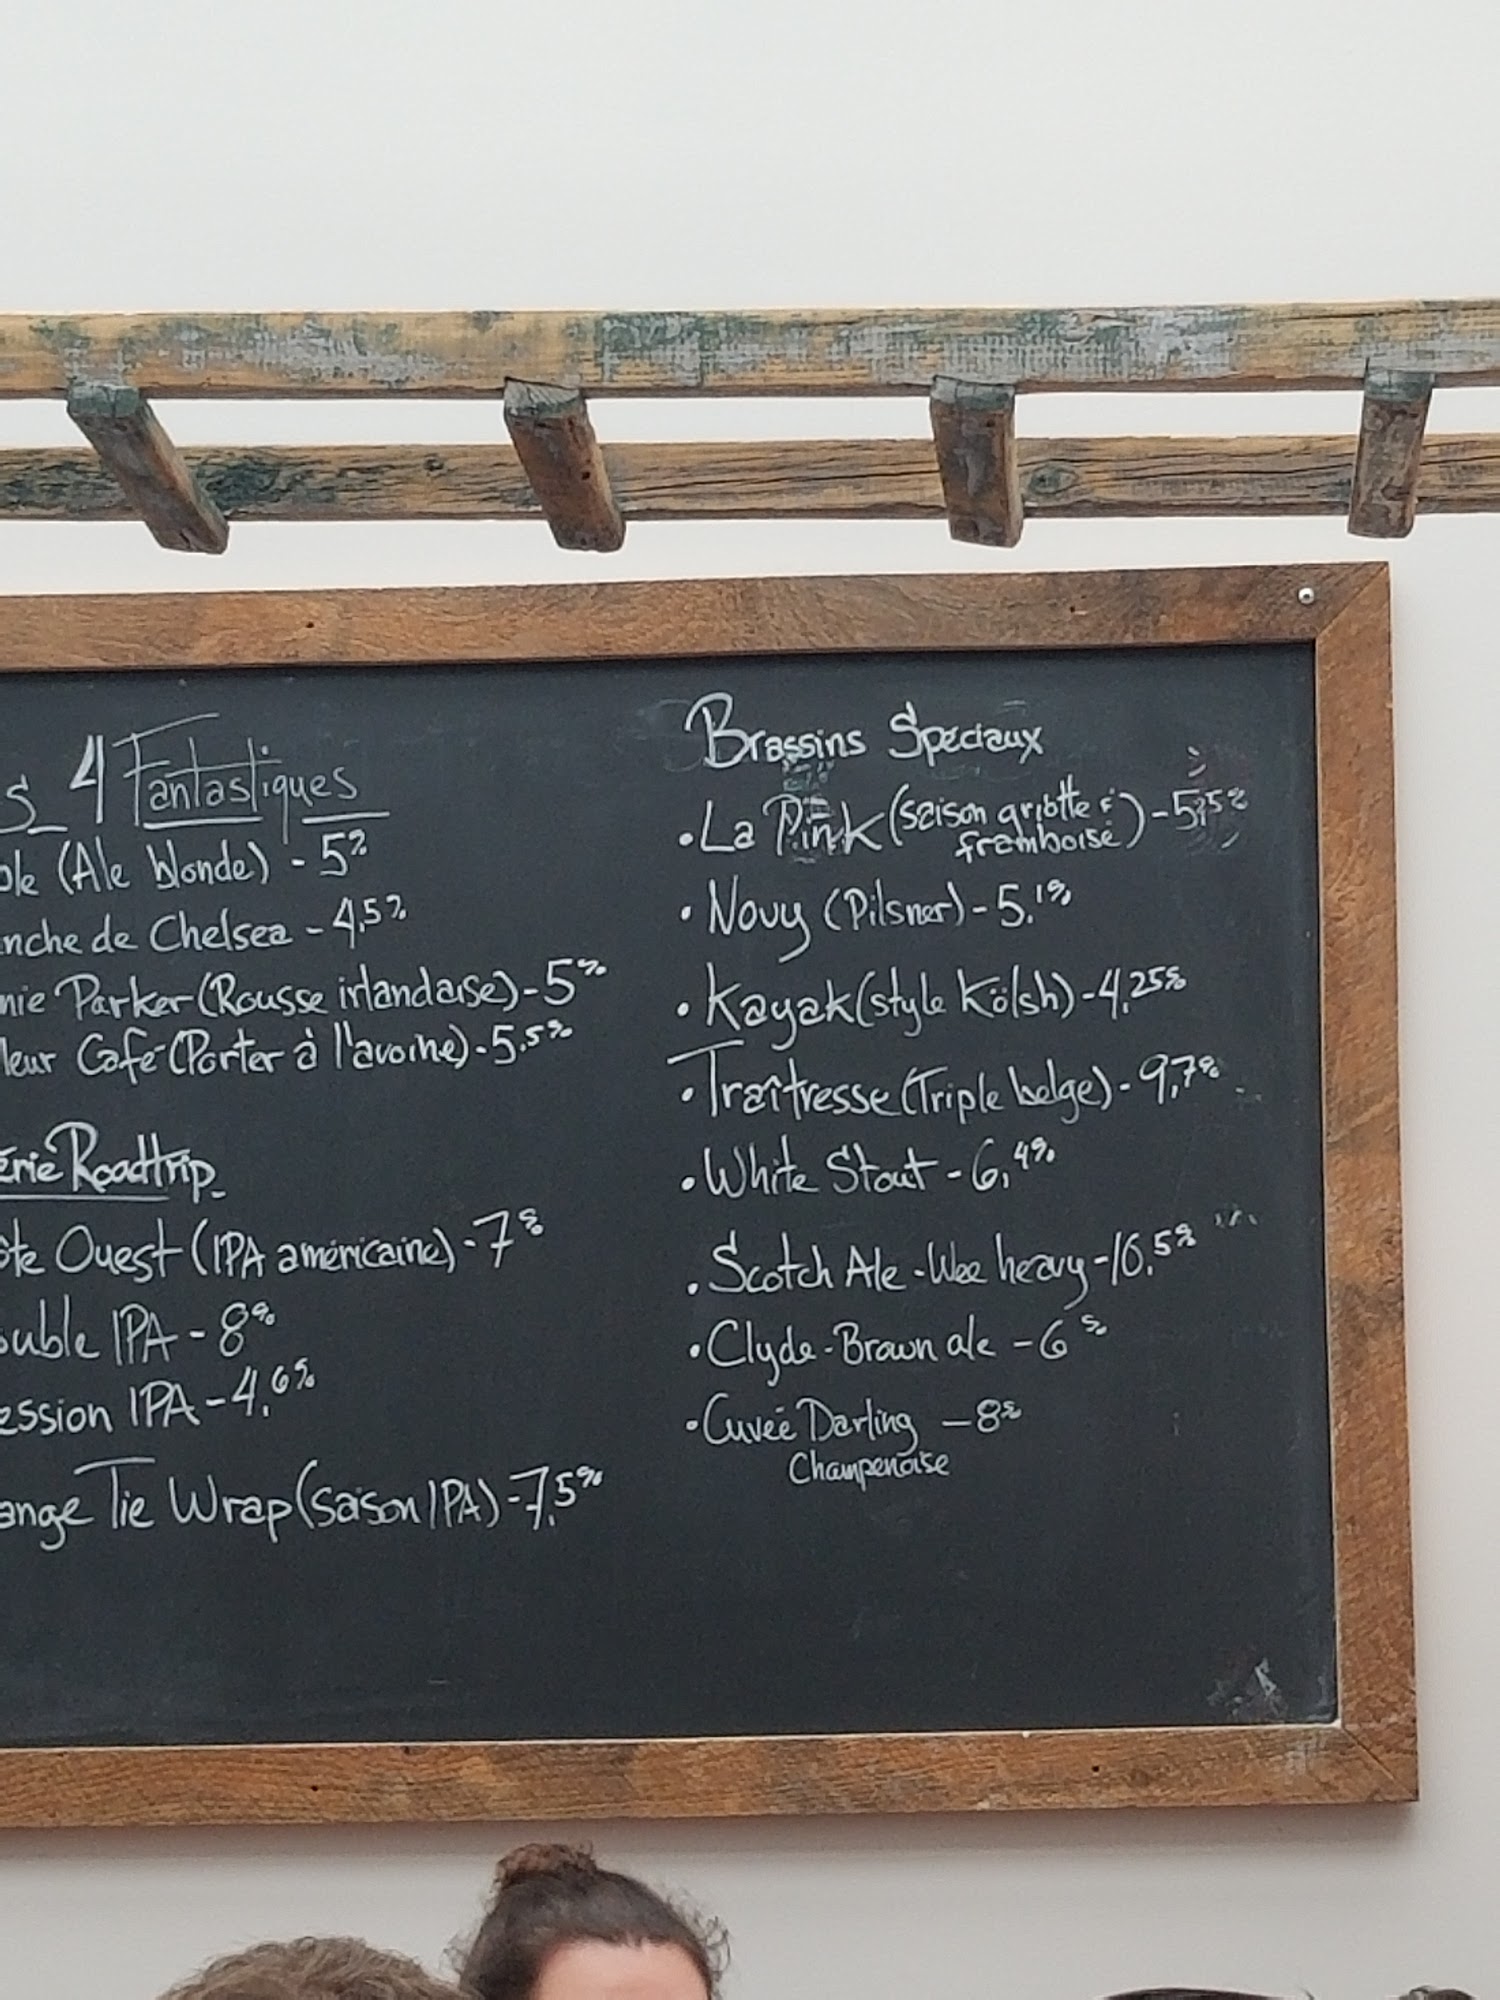 s 4 Fantastiques
ble (Ale blonde) - 5%
nche de Chelsea - 4,5%
mie Parker (Rousse irlandaise) - 5%
leur Café (Porter à l'avoine) - 5.5%
érie Roadtrip
ôte Ouest (IPA américaine) - 7%
ouble IPA - 8%
ession IPA - 4,6%
ange Tie Wrap (saison IPA) - 7,5%
Brassins Spéciaux
• La Pink (saison griotte & framboise) - 5,5%
• Novy (Pilsner) - 5,1%
• Kayak (style Kölsh) - 4,25%
• Traîtresse (Triple belge) - 9,7%
• White Stout - 6,4%
• Scotch Ale - Wee heavy - 10,5%
• Clyde - Brown ale - 6%
• Cuvée Darling - 8%
Champenoise